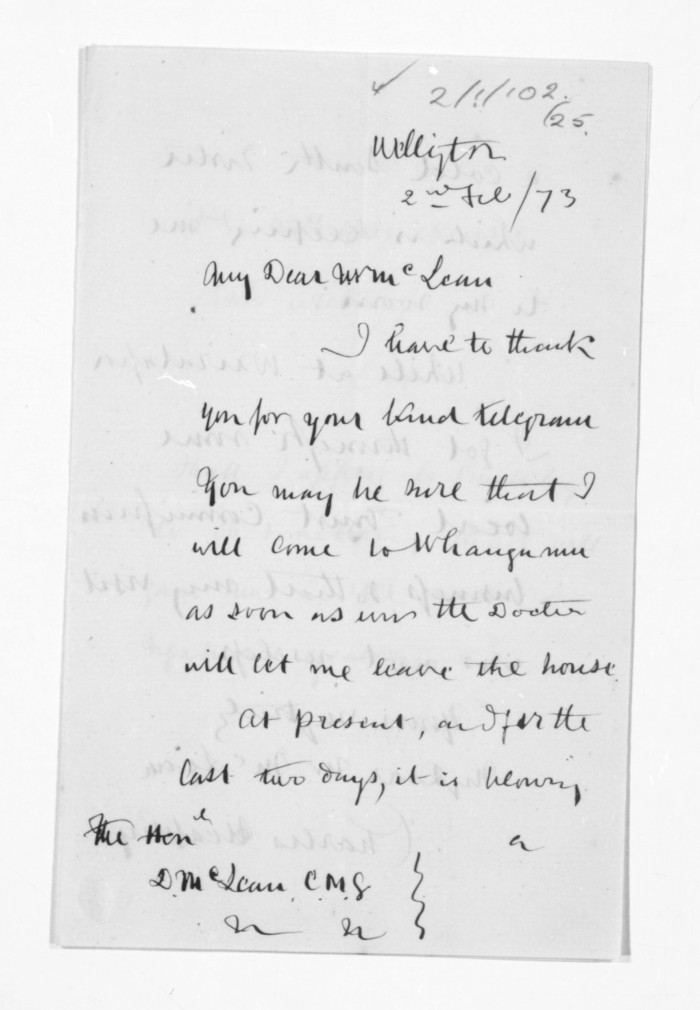 2/1/102.
/25.
Wellington
2nd Feb/73
My Dear Mr McLean
I have to thank
you for your kind telegram
You may be sure that I
will come to Whanganui
as soon as ever the Doctor
will let me leave the house
At present, and for the
last two days, it is blowing
a
The Honl
D. McLean C.M.G